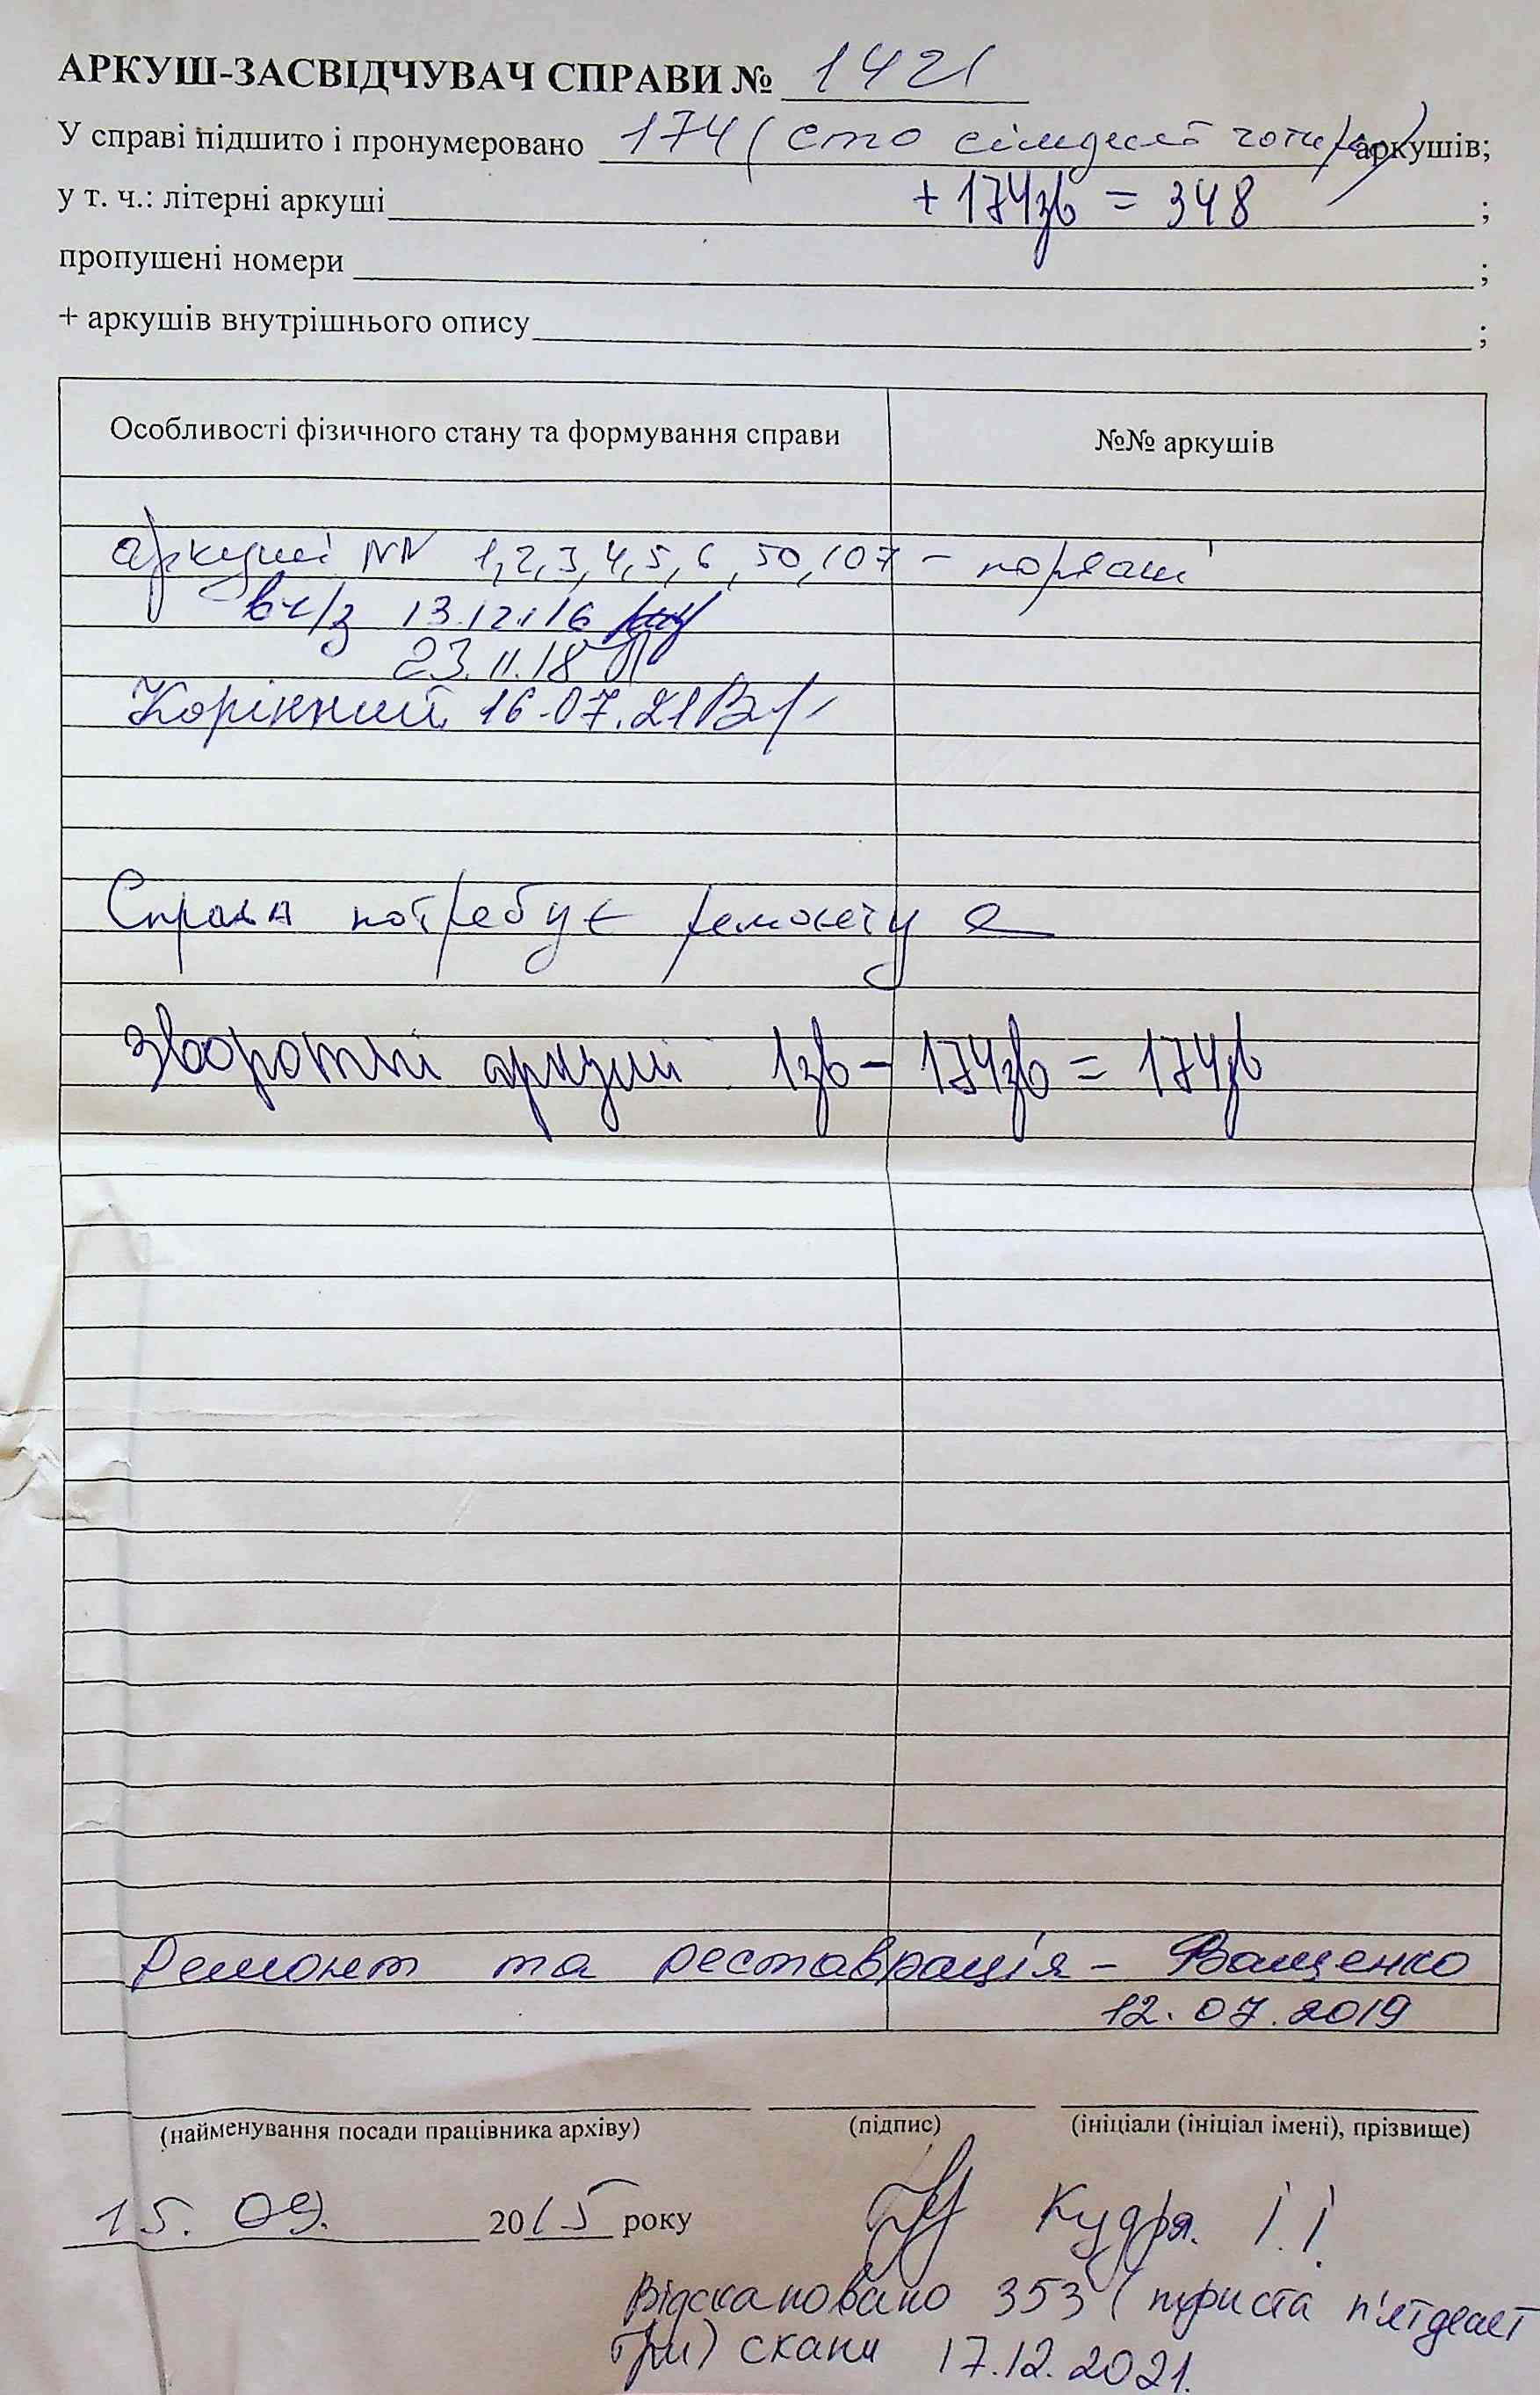 АРКУШ-ЗАСВІДЧУВАЧ СПРАВИ № 1421
У справі підшито і пронумеровано 174 (сто сімдесят чотири) аркушів;
у т. ч.: літерні аркуші + 174зв = 348 ;
пропущені номери ;
+ аркушів внутрішнього опису ;
Особливості фізичного стану та формування справи №№ аркушів
аркуші NN 1,2,3,4,5,6,50,107 – порвані
вч/з 13.12.16
23.11.18
Корінний 16.07.21
Справа потребує ремонту
Зворотні аркуші 1зв – 174зв = 174зв
Ремонт та реставрація – Ващенко
12.07.2019
(найменування посади працівника архіву) (підпис) (ініціали (ініціал імені), прізвище)
15. 09. 2015 року Кудря. І. І.
Відскановано 353 (триста п'ятдесят
три) скани 17.12.2021.